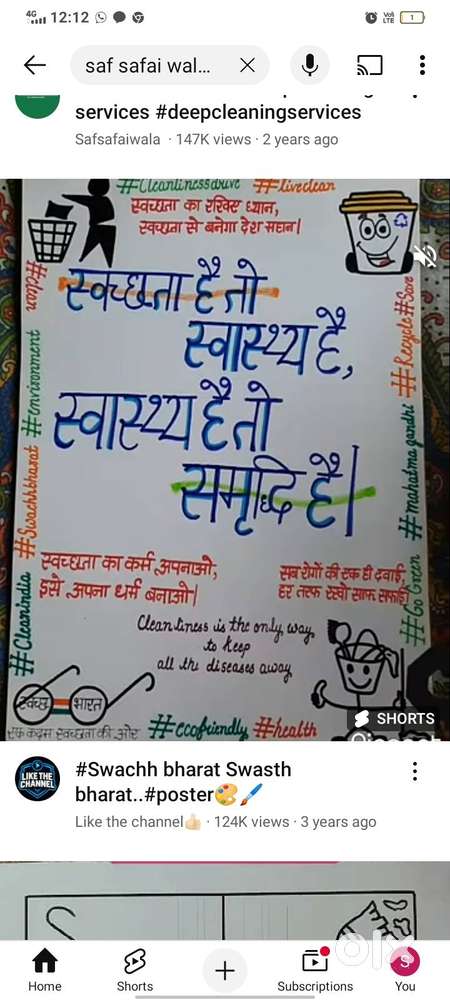 4G 12:12 Vo) LTE 1
saf safai wal...
services #deepcleaningservices
Safsafaiwala · 147K views · 2 years ago
#Cleanlinessdrive #liveclean
स्वच्छता का रखिए ध्यान,
स्वच्छता से बनेगा देश महान।
#clean
#environment
#Swachhbharat
#Cleanindia
#Recycle #Save
#mahatma gandhi
#Go Green
स्वच्छता है तो
स्वास्थ्य है,
स्वास्थ्य है तो
समृद्धि है।
स्वच्छता का कर्म अपनाओ,
इसे अपना धर्म बनाओ।
सब रोगों की एक ही दवाई,
हर तरफ रखो साफ सफाई
Cleanliness is the only way
to keep
all the diseases away
स्वच्छ भारत
एक कदम स्वच्छता की ओर
#ecofriendly #health
SHORTS
LIKE THE
CHANNEL
#Swachh bharat Swasth
bharat..#poster🎨🖌️
Like the channel👍🏻 · 124K views · 3 years ago
S
olx
Home
Shorts
Subscriptions
S
You